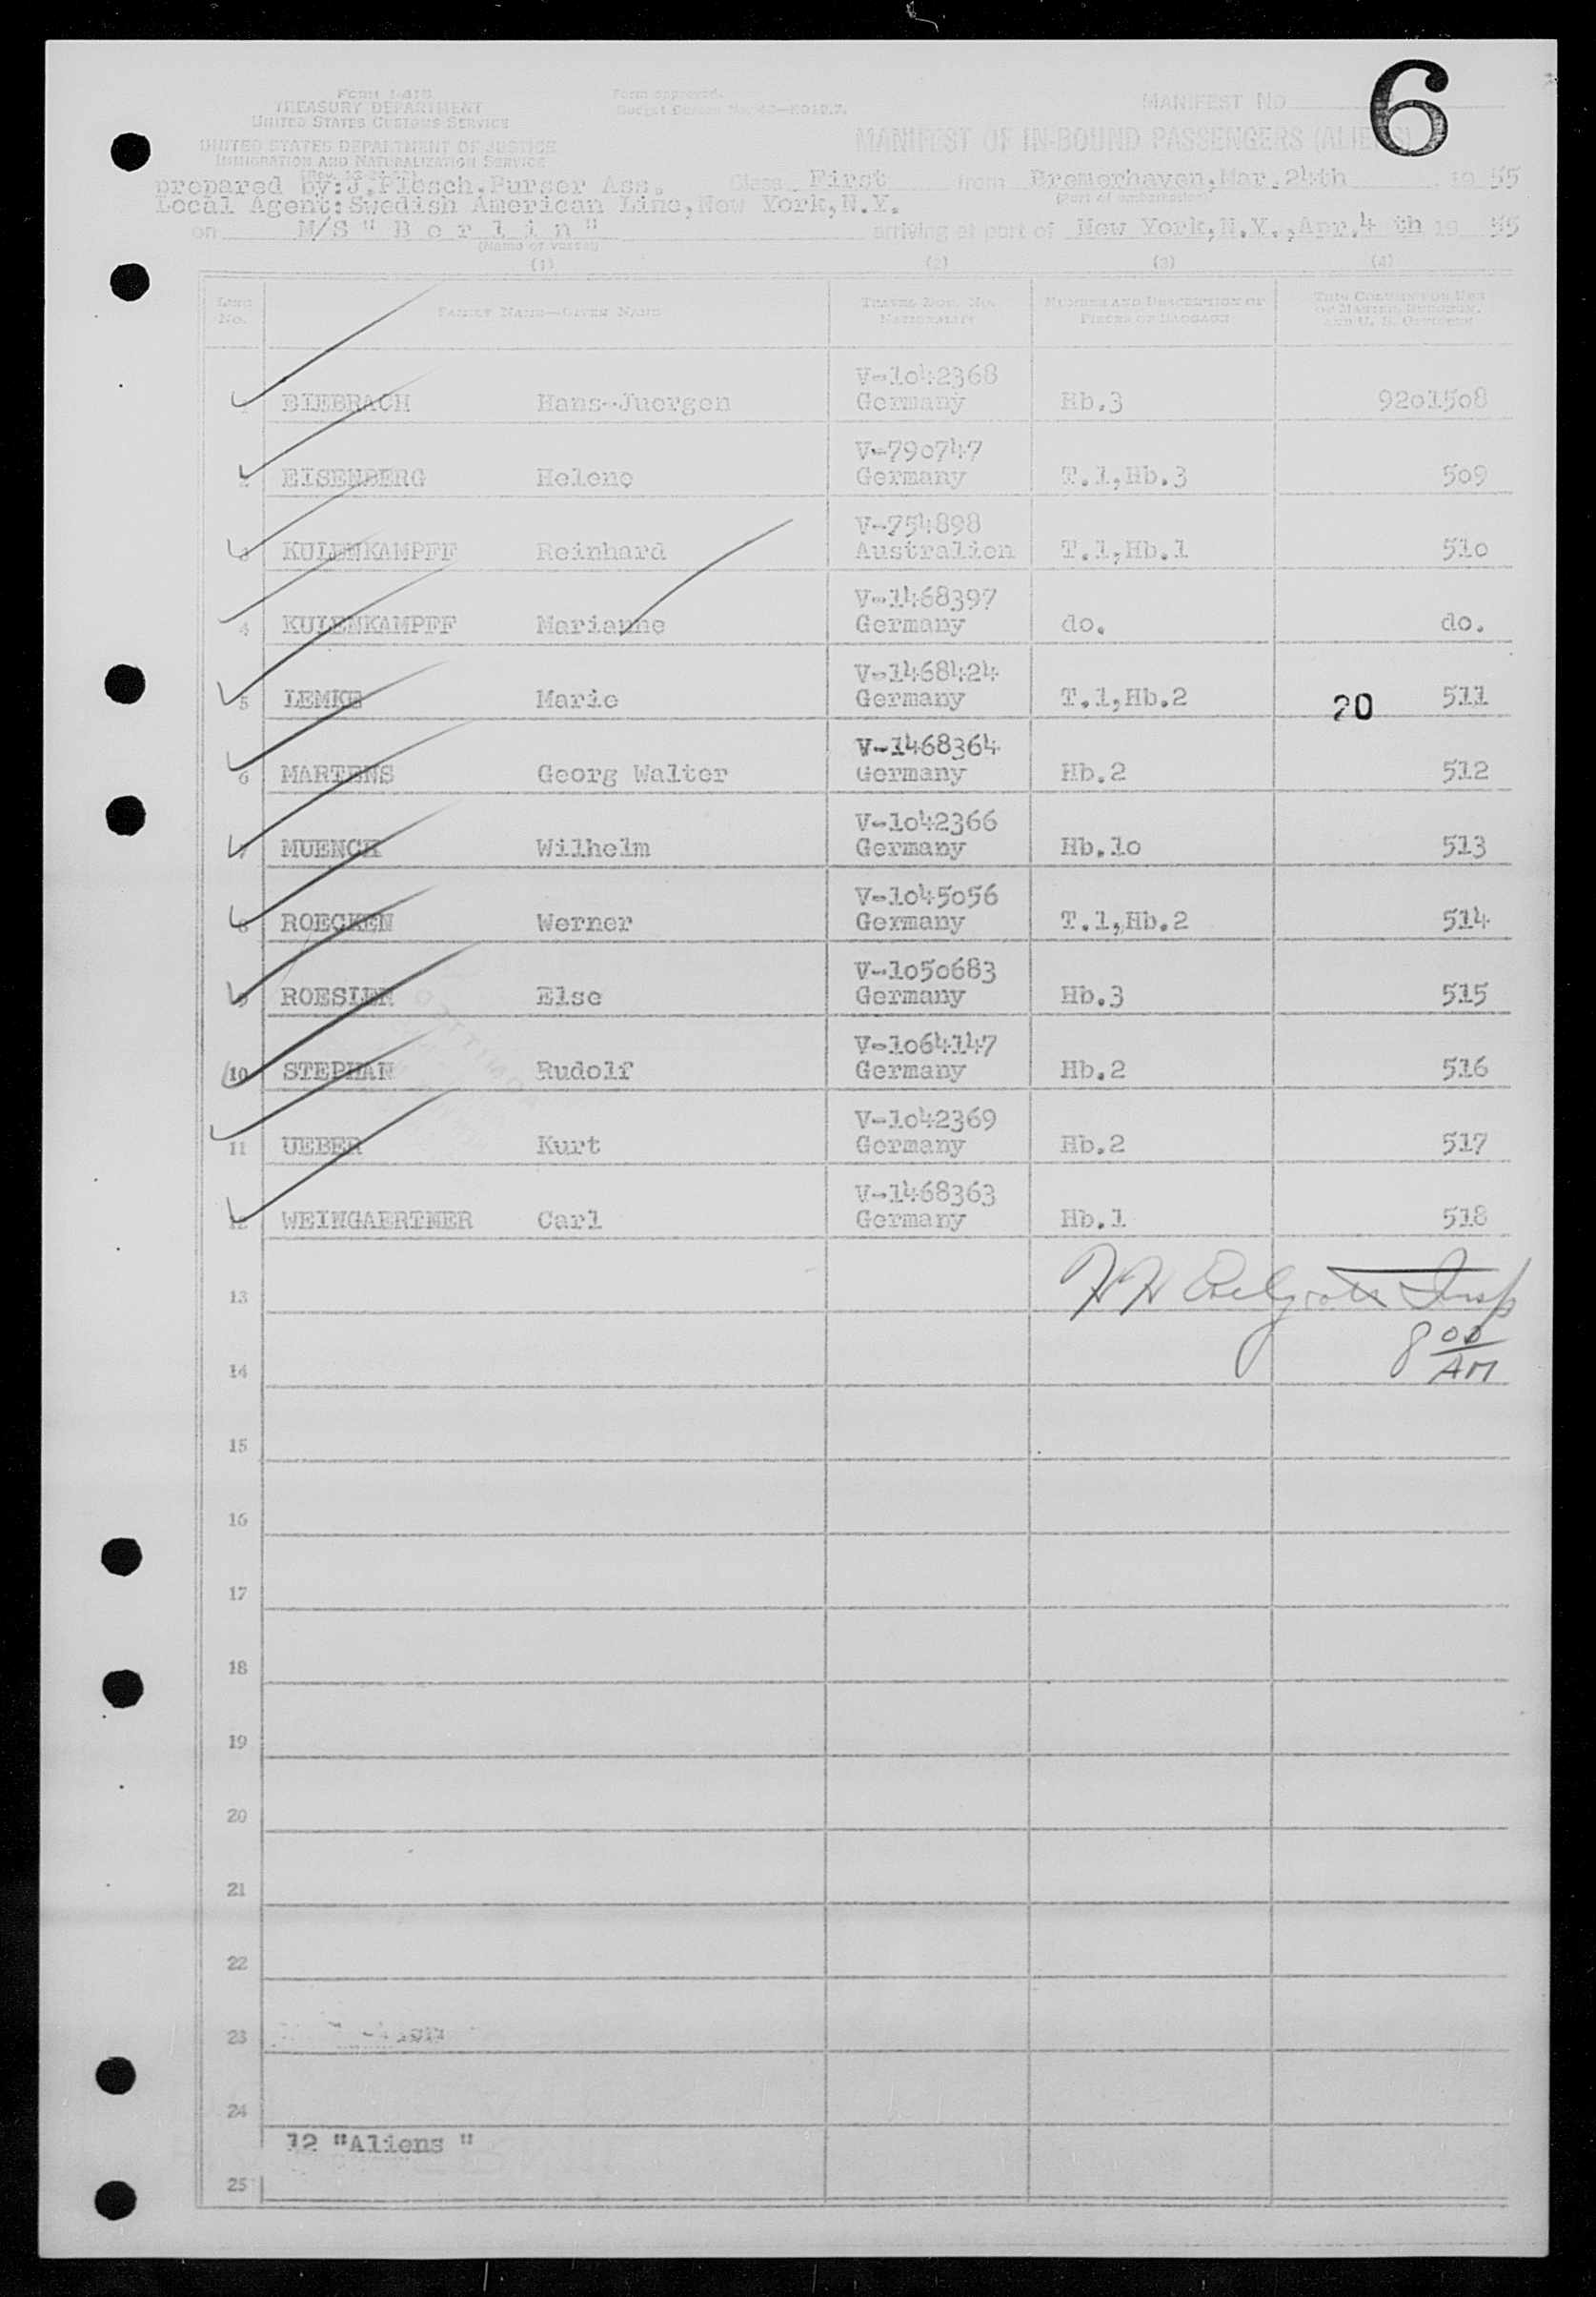 6
Form I-418
TREASURY DEPARTMENT
UNITED STATES CUSTOMS SERVICE
UNITED STATES DEPARTMENT OF JUSTICE
IMMIGRATION AND NATURALIZATION SERVICE
Form approved.
MANIFEST No.
MANIFEST OF IN-BOUND PASSENGERS (ALIENS)
prepared by:J.Plosch.Purser Ass. Class First from Bremerhaven,Mar.24th 19 55
(Port of embarkation)
Local Agent:Swedish American Line,New York,N.Y.
on M/S " B e r l i n " arriving at port of New York,N.Y.,Apr.4 th 19 55
(Name of vessel)
(1) (2) (3) (4)
LINE No. FAMILY NAME—GIVEN NAME TRAVEL DOC. NO. NATIONALITY NUMBER AND DESCRIPTION OF PIECES OF BAGGAGE THIS COLUMN FOR USE OF MASTER, SURGEON, AND U. S. OFFICERS
V-1042368
1 BIEBRACH Hans-Juergen Germany Hb.3 9201508
V-790747
2 EISENBERG Helene Germany T.1,Hb.3 509
V-754898
3 KULENKAMPFF Reinhard Australien T.1,Hb.1 510
V-1468397
4 KULENKAMPFF Marianne Germany do. do.
V-1468424
5 LEMKE Marie Germany T.1,Hb.2 20 511
V-1468364
6 MARTENS Georg Walter Germany Hb.2 512
V-1042366
7 MUENCH Wilhelm Germany Hb.10 513
V-1045056
8 ROECKEN Werner Germany T.1,Hb.2 514
V-1050683
9 ROESLER Else Germany Hb.3 515
V-1064147
10 STEPHAN Rudolf Germany Hb.2 516
V-1042369
11 UEBER Kurt Germany Hb.2 517
V-1468363
12 WEINGAERTNER Carl Germany Hb.1 518
13 Insp
8 00 AM
14
15
16
17
18
19
20
21
22
23
24
12 "Aliens "
25